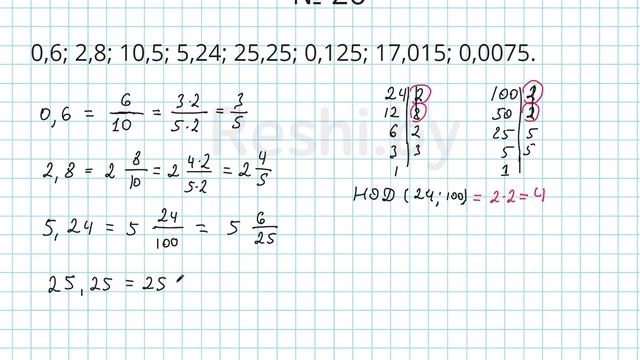 № 20
0,6; 2,8; 10,5; 5,24; 25,25; 0,125; 17,015; 0,0075.
0,6 = 6/10 = 3·2/5·2 = 3/5
2,8 = 2 8/10 = 2 4·2/5·2 = 2 4/5
5,24 = 5 24/100 = 5 6/25
25,25 = 25
24 | 2
12 | 2
6 | 2
3 | 3
1
100 | 2
50 | 2
25 | 5
5 | 5
1
НОД (24; 100) = 2·2 = 4
Reshi.by